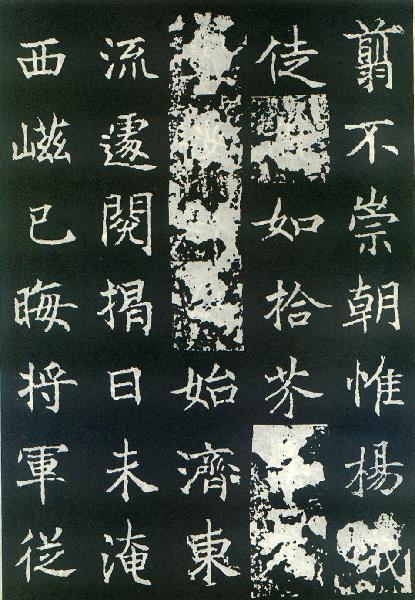 翦不崇朝惟楊
徒如拾芥
始濟東
流遽閱揭日未淹
西嵫已晦将軍従